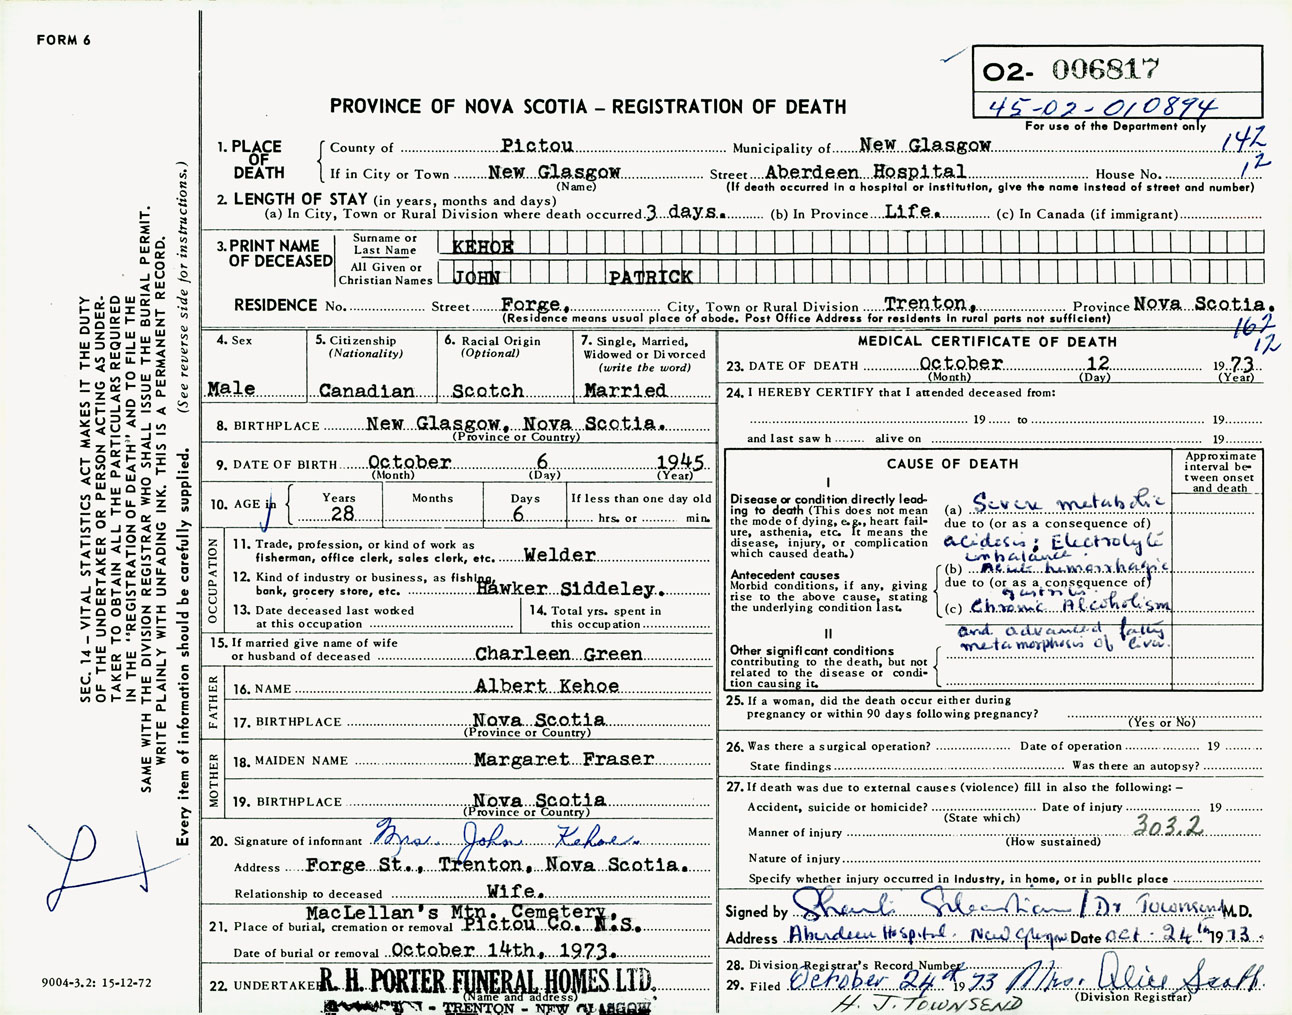 FORM 6
O2- 006817
45-02-010894
For use of the Department only
PROVINCE OF NOVA SCOTIA – REGISTRATION OF DEATH
142
12
1. PLACE OF DEATH
County of Pictou Municipality of New Glasgow
If in City or Town New Glasgow Street Aberdeen Hospital House No.
(Name) (If death occurred in a hospital or institution, give the name instead of street and number)
2. LENGTH OF STAY (in years, months and days)
(a) In City, Town or Rural Division where death occurred 3 days. (b) In Province Life. (c) In Canada (if immigrant)
3. PRINT NAME OF DECEASED
Surname or Last Name KEHOE
All Given or Christian Names JOHN PATRICK
RESIDENCE No. Street Forge, City, Town or Rural Division Trenton, Province Nova Scotia.
(Residence means usual place of abode. Post Office Address for residents in rural parts not sufficient)
162
12
4. Sex
Male
5. Citizenship
(Nationality)
Canadian
6. Racial Origin
(Optional)
Scotch
7. Single, Married,
Widowed or Divorced
(write the word)
Married
8. BIRTHPLACE New Glasgow, Nova Scotia.
(Province or Country)
9. DATE OF BIRTH October 6 1945
(Month) (Day) (Year)
10. AGE in
Years Months Days If less than one day old
28 6 hrs. or min.
OCCUPATION
11. Trade, profession, or kind of work as
fisherman, office clerk, sales clerk, etc. Welder
12. Kind of industry or business, as fishing,
bank, grocery store, etc. Hawker Siddeley.
13. Date deceased last worked
at this occupation
14. Total yrs. spent in
this occupation
15. If married give name of wife
or husband of deceased Charleen Green
FATHER
16. NAME Albert Kehoe
17. BIRTHPLACE Nova Scotia
(Province or Country)
MOTHER
18. MAIDEN NAME Margaret Fraser
19. BIRTHPLACE Nova Scotia
(Province or Country)
20. Signature of informant Mrs. John Kehoe.
Address Forge St., Trenton, Nova Scotia.
Relationship to deceased Wife.
MacLellan's Mtn. Cemetery,
21. Place of burial, cremation or removal Pictou Co. N.S.
Date of burial or removal October 14th, 1973.
22. UNDERTAKER R. H. PORTER FUNERAL HOMES LTD.
(Name and address)
- TRENTON - NEW GLASGOW
MEDICAL CERTIFICATE OF DEATH
23. DATE OF DEATH October 12 1973
(Month) (Day) (Year)
24. I HEREBY CERTIFY that I attended deceased from:
19 to 19
and last saw h alive on 19
CAUSE OF DEATH
Approximate
interval be-
tween onset
and death
I
Disease or condition directly lead-
ing to death (This does not mean
the mode of dying, e.g., heart fail-
ure, asthenia, etc. It means the
disease, injury, or complication
which caused death.)
(a) Severe metabolic
due to (or as a consequence of)
acidosis; Electrolyte
imbalance.
Antecedent causes
Morbid conditions, if any, giving
rise to the above cause, stating
the underlying condition last.
(b) Acute hemorrhagic
due to (or as a consequence of)
gastritis.
(c) Chronic Alcoholism
and advanced fatty
metamorphosis of liver.
II
Other significant conditions
contributing to the death, but not
related to the disease or condi-
tion causing it.
25. If a woman, did the death occur either during
pregnancy or within 90 days following pregnancy?
(Yes or No)
26. Was there a surgical operation? Date of operation 19
State findings Was there an autopsy?
27. If death was due to external causes (violence) fill in also the following: –
Accident, suicide or homicide? Date of injury 19
(State which)
303.2
Manner of injury
(How sustained)
Nature of injury
Specify whether injury occurred in industry, in home, or in public place
Signed by / Dr Townsend M.D.
Address Aberdeen Hospital. New Glasgow Date Oct. 24th 1973.
28. Division Registrar's Record Number
29. Filed October 24 1973 Mrs. Alice Scott.
(Division Registrar)
H. J. TOWNSEND
SEC. 14 – VITAL STATISTICS ACT MAKES IT THE DUTY
OF THE UNDERTAKER OR PERSON ACTING AS UNDER-
TAKER TO OBTAIN ALL THE PARTICULARS REQUIRED
IN THE "REGISTRATION OF DEATH" AND TO FILE THE
SAME WITH THE DIVISION REGISTRAR WHO SHALL ISSUE THE BURIAL PERMIT.
WRITE PLAINLY WITH UNFADING INK. THIS IS A PERMANENT RECORD.
Every item of information should be carefully supplied. (See reverse side for instructions.)
9004-3.2: 15-12-72